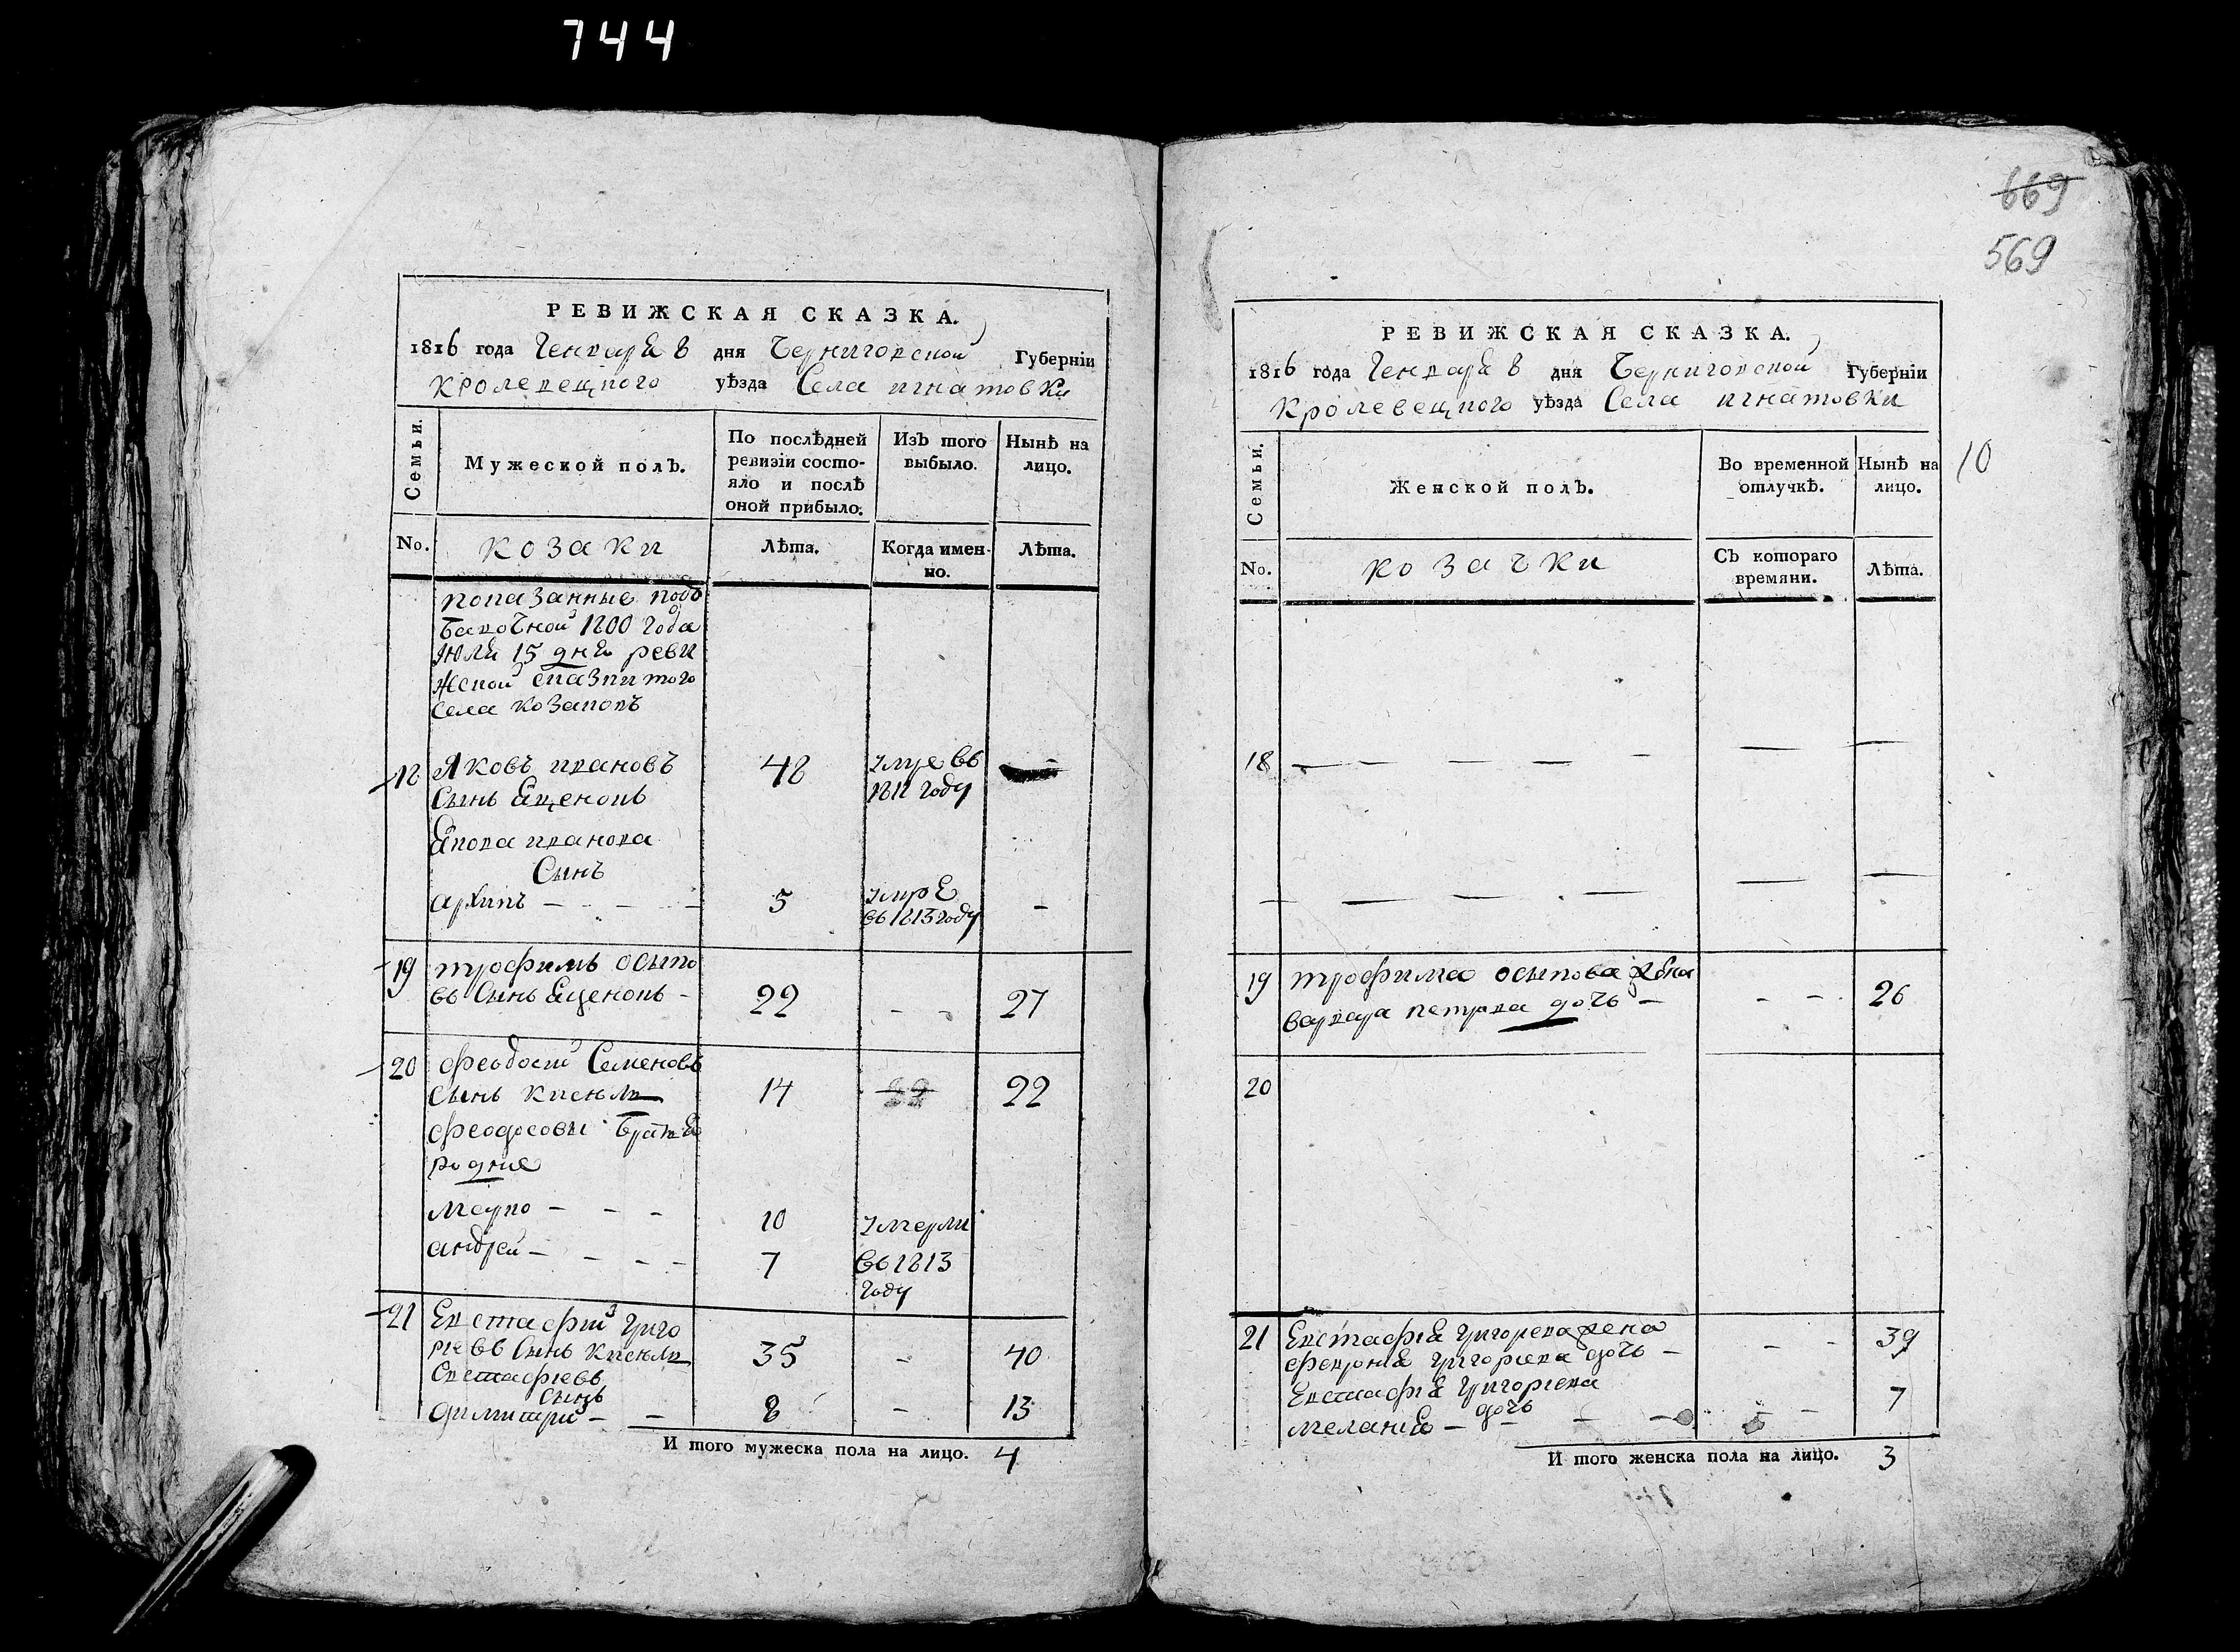 744
РЕВИЖСКАЯ СКАЗКА.
1816 года Генваря 8 дня Черниговской Губерніи
Кролевецкого уѣзда Села игнатовки
Семьи.
Мужеской полъ.
По послѣдней ревизіи состо-
яло и послѣ
оной прибыло.
Изъ того
выбыло.
Нынѣ на
лицо.
No.
козаки
Лѣта.
Когда имен-
но.
Лѣта.
показанные подъ
1800 года
Июля 15 дня реви
жской сказки того
села козаковъ
18 Яковъ ивановъ 48 умре въ —
сынъ Ященокъ 1811 году
Якова иванова
Сынъ
архипъ — — — 5 умре —
въ 1813 году
19 трофимъ осипо
въ Сынъ Яценокъ — 22 — — 27
20 феодосий Семеновъ
сынъ 14 22 22
феодосовы братья
родние
марко — — — 10 умерли
андрей — — — 7 въ 1813
году
21 Евстафий Григо
риевъ Сынъ 35 — 40
Евстафиевъ
сынъ
димитрий — — 8 — 13
И того мужеска пола на лицо. 4
669
569
РЕВИЖСКАЯ СКАЗКА.
1816 года Генваря 8 дня Черниговской Губерніи
Кролевецкого уѣзда Села игнатовки
Семьи.
Женской полъ.
Во временной
отлучкѣ.
Нынѣ на
лицо.
10
No.
козачки
Съ котораго
времяни.
Лѣта.
18 — — — — — — —
— — — — — —
19 трофима осипова жена
варвара петрова дочь — — — 26
20
21 Евстафия григорева жена 39
феврония григориева дочь — — —
Евстафия Григориева
дочь 7
мелания — — — — — —
И того женска пола на лицо. 3